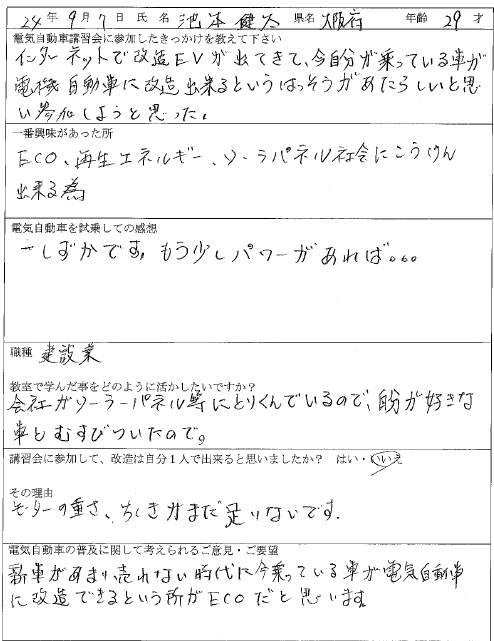 24年 9月 7日 氏名 池本 健太 県名 大阪府 年齢 29才
電気自動車講習会に参加したきっかけを教えて下さい
インターネットで改造EVが出てきて、今自分が乗っている車が
電機自動車に改造出来るというはっそうがあたらしいと思
い参加しようと思った。
一番興味があった所
ECO、再生エネルギー、ソーラパネル社会にこうけん
出来る為
電気自動車を試乗しての感想
しずかです。もう少しパワーがあれば。。。
職種 建設業
教室で学んだ事をどのように活かしたいですか?
会社がソーラーパネル等にとりくんでいるので、自分が好きな
車とむすびついたので。
講習会に参加して、改造は自分1人で出来ると思いましたか? はい・いいえ
その理由
モーターの重さ、ちしきがまだ足りないです。
電気自動車の普及に関して考えられるご意見・ご要望
新車があまり売れない時代に今乗っている車が電気自動車
に改造できるという所がECOだと思います